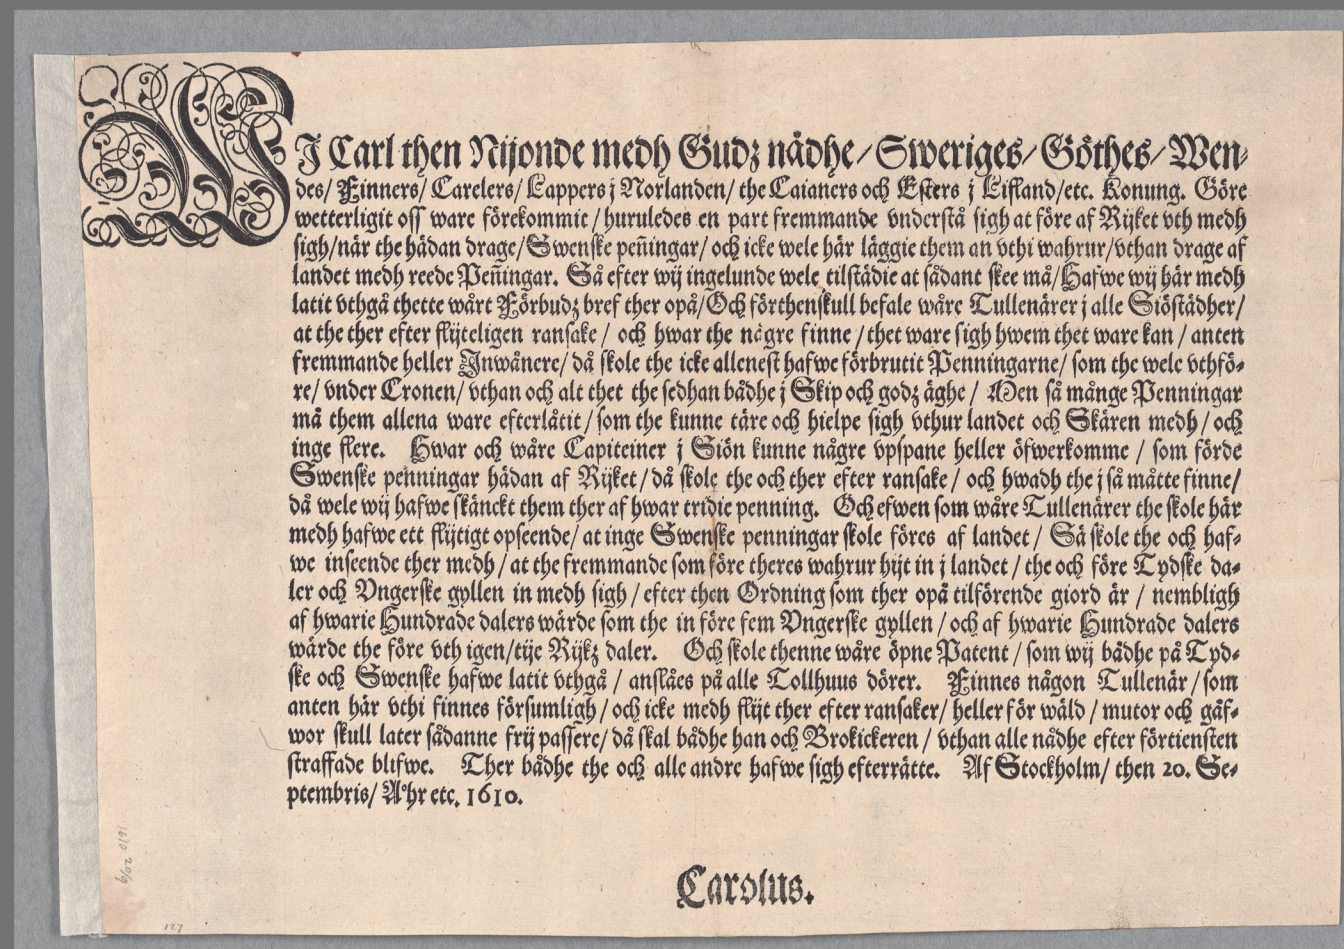 WJ Carl then Nijonde medh Gudz nådhe/ Sweriges/ Göthes/ Wen-
des/ Finners/ Carelers/ Lappers j Norlanden/ the Caianers och Esters j Lifland/etc. Konung. Göre
wetterligit oss ware förekommit/ huruledes en part fremmande vnderstå sigh at före af Rijket vth medh
sigh/när the hädan drage/Swenske peñingar/ och icke wele här läggie them an vthi wahrur/vthan drage af
landet medh reede Peñingar. Så efter wij ingelunde wele tilstädie at sådant skee må/Hafwe wij här medh
latit vthgå thette wårt Förbudz bref ther opå/Och förthenskull befale wåre Tullenärer j alle Siöstädher/
at the ther efter flijteligen ransake/ och hwar the någre finne/thet ware sigh hwem thet ware kan/ anten
fremmande heller Jnwånere/ då skole the icke allenest hafwe förbrutit Penningarne/ som the wele vthfö-
re/ vnder Cronen/ vthan och alt thet the sedhan bådhe j Skip och godz äghe/ Men så månge Penningar
må them allena ware efterlåtit/ som the kunne täre och hielpe sigh vthur landet och Skären medh/ och
inge flere. Hwar och wåre Capiteiner j Siön kunne någre vpspane heller öfwerkomme/ som förde
Swenske penningar hädan af Rijket/ då skole the och ther efter ransake/ och hwadh the j så måtte finne/
då wele wij hafwe skänckt them ther af hwar tridie penning. Och efwen som wåre Tullenärer the skole här
medh hafwe ett flijtigt opseende/ at inge Swenske penningar skole föres af landet/ Så skole the och haf-
we inseende ther medh/ at the fremmande som före theres wahrur hijt in j landet/ the och före Tydske da-
ler och Vngerske gyllen in medh sigh/ efter then Ordning som ther opå tilförende giord är/ nembligh
af hwarie Hundrade dalers wärde som the in före fem Vngerske gyllen/ och af hwarie Hundrade dalers
wärde the före vth igen/tije Rijkz daler. Och skole thenne wåre öpne Patent/ som wij bådhe på Tyd-
ske och Swenske hafwe latit vthgå/ anslåes på alle Tollhuus dörer. Finnes någon Tullenär/ som
anten här vthi finnes försumligh/ och icke medh flijt ther efter ransaker/ heller för wäld/ mutor och gåf-
wor skull later sådanne frij passere/ då skal bådhe han och Brokickeren/ vthan alle nådhe efter förtiensten
straffade blifwe. Ther bådhe the och alle andre hafwe sigh efterrätte. Af Stockholm/ then 20. Se-
ptembris/ Åhr etc. 1610.
Carolus.
1610 20/9
127